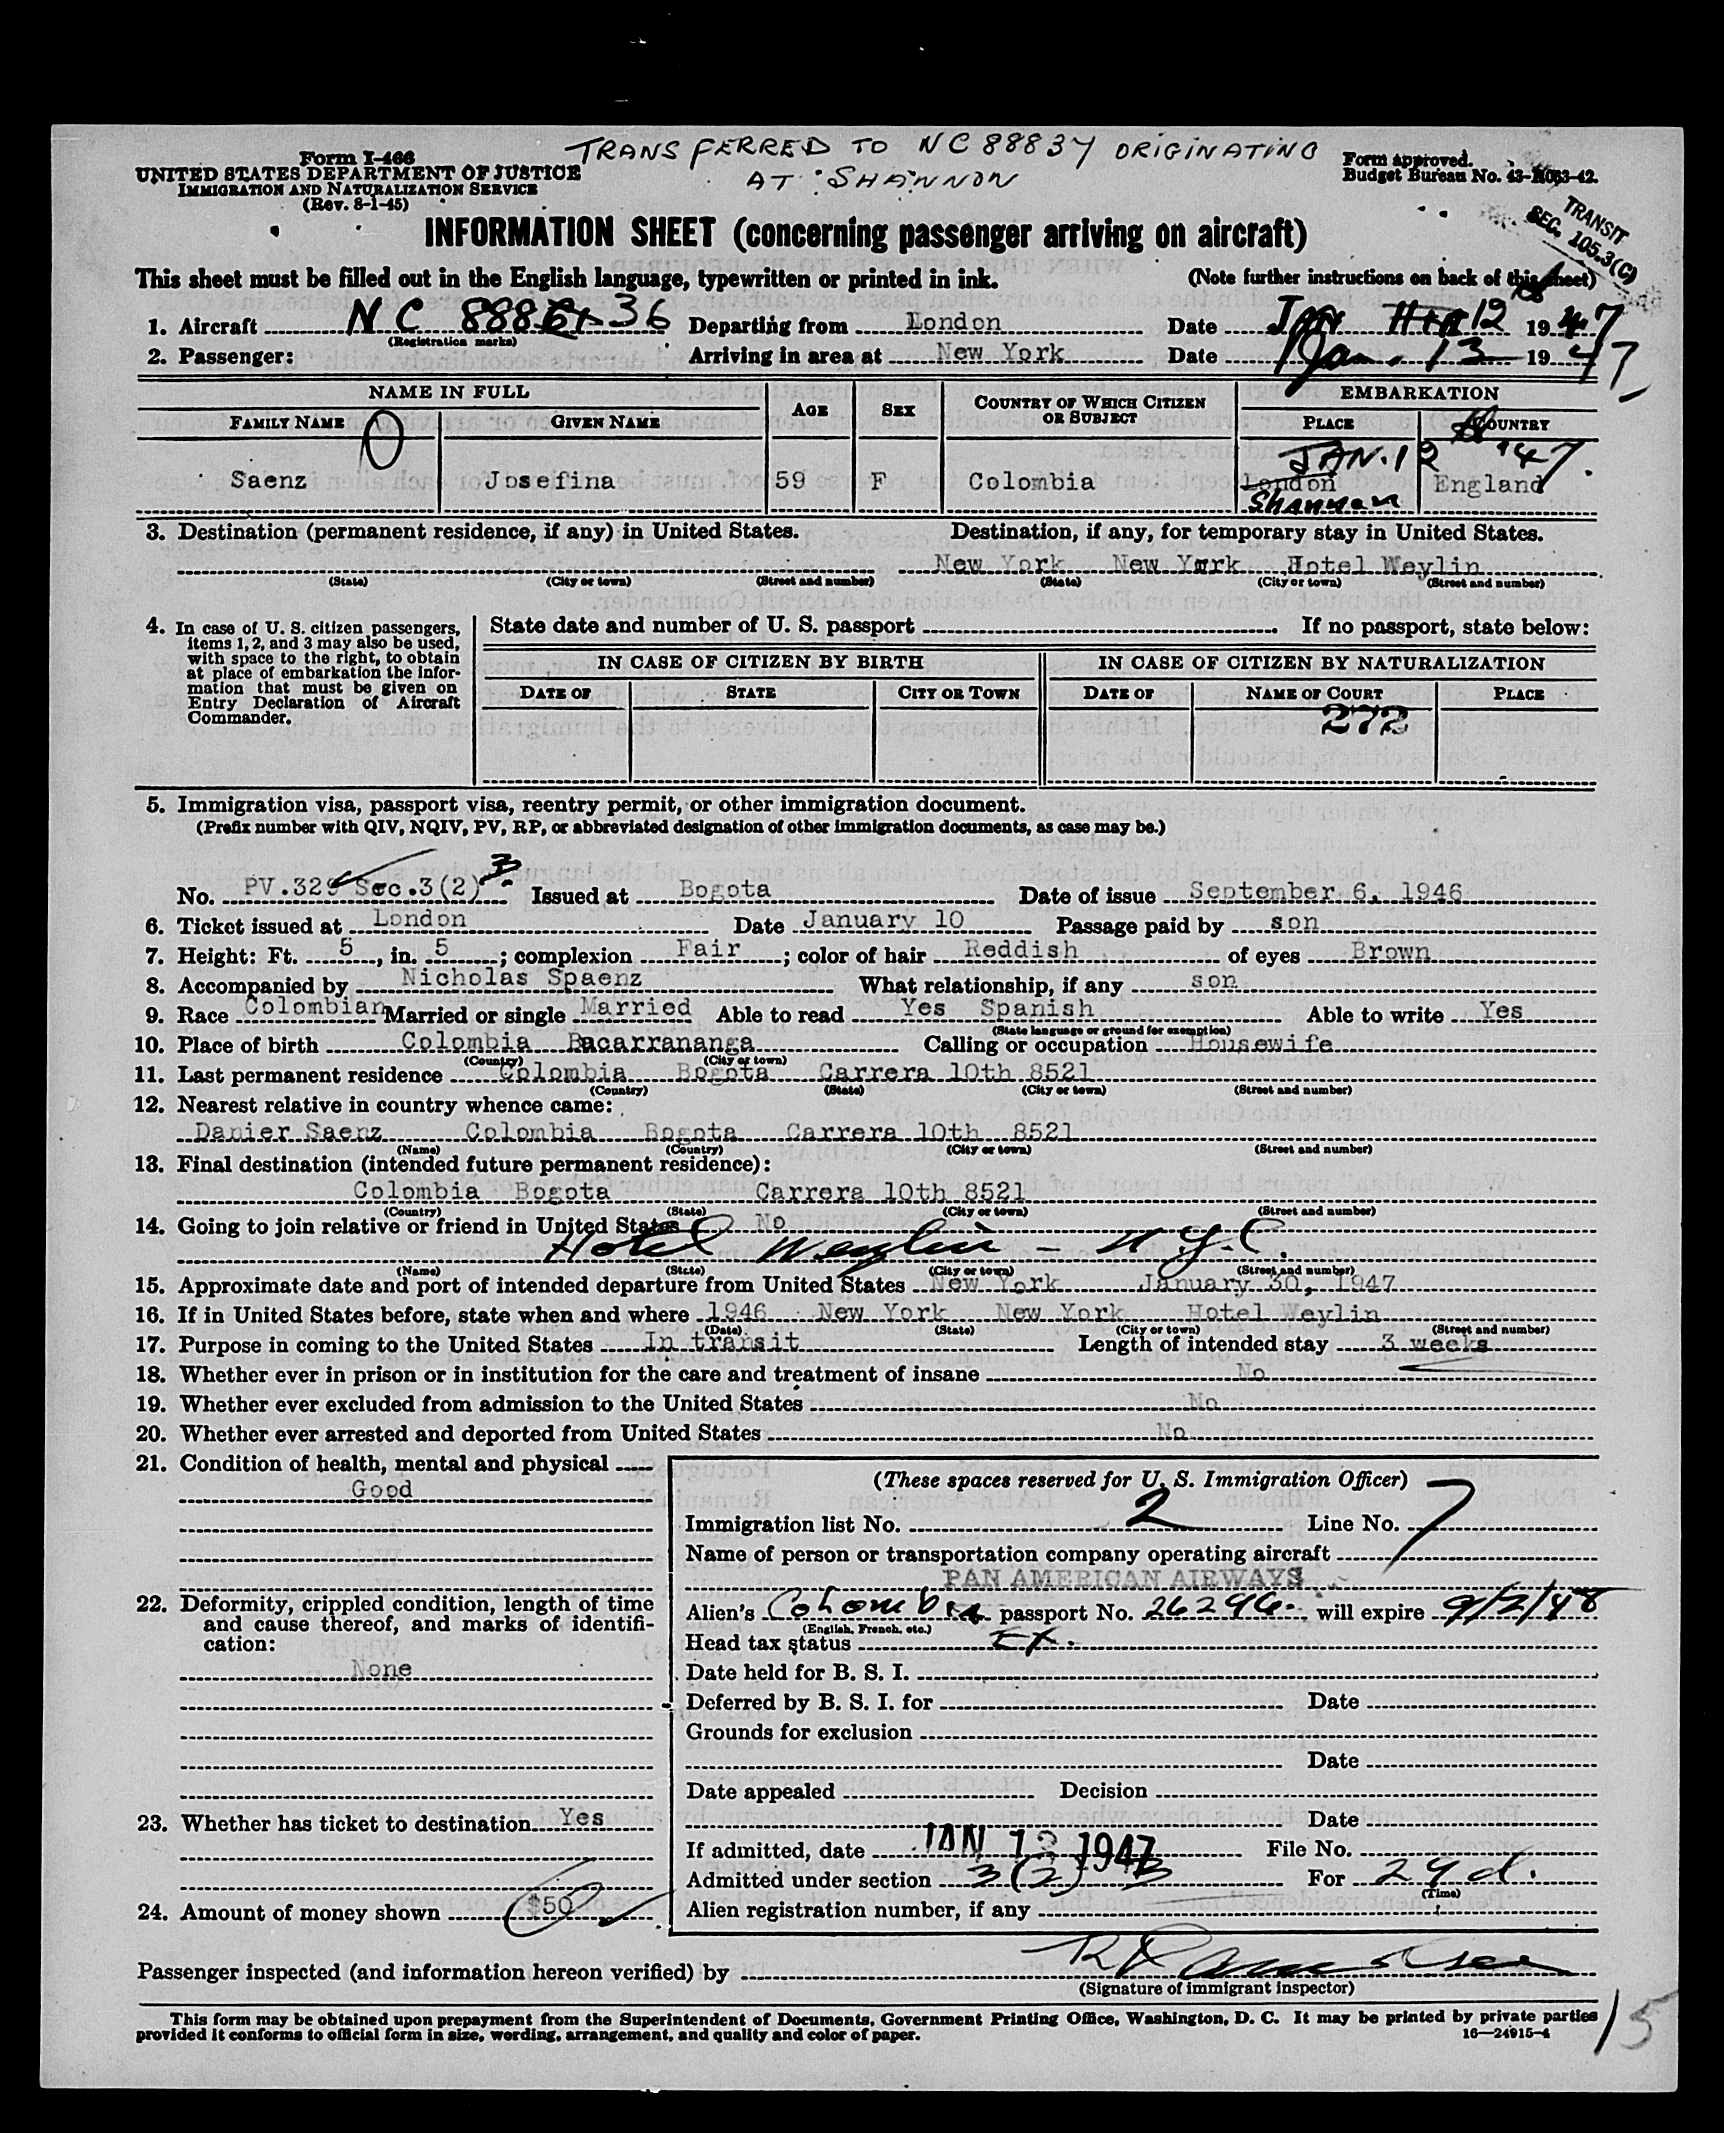 TRANSFERRED TO NC 88837 ORIGINATING
AT SHANNON
Form I-466
UNITED STATES DEPARTMENT OF JUSTICE
IMMIGRATION AND NATURALIZATION SERVICE
(Rev. 8-1-45)
Form approved.
Budget Bureau No. 43-R063-42.
TRANSIT
SEC. 105.3(C)
INFORMATION SHEET (concerning passenger arriving on aircraft)
This sheet must be filled out in the English language, typewritten or printed in ink. (Note further instructions on back of this sheet)
1. Aircraft NC 888 36 Departing from London Date Jan 12 1947
(Registration marks)
2. Passenger: Arriving in area at New York Date Jan. 13 1947
NAME IN FULL AGE SEX COUNTRY OF WHICH CITIZEN OR SUBJECT EMBARKATION
FAMILY NAME GIVEN NAME PLACE COUNTRY
JAN. 12 '47.
Saenz Josefina 59 F Colombia London England
Shannon
3. Destination (permanent residence, if any) in United States. Destination, if any, for temporary stay in United States.
New York New York Hotel Weylin
(State) (City or town) (Street and number) (State) (City or town) (Street and number)
4. In case of U. S. citizen passengers, items 1, 2, and 3 may also be used, with space to the right, to obtain at place of embarkation the information that must be given on Entry Declaration of Aircraft Commander.
State date and number of U. S. passport If no passport, state below:
IN CASE OF CITIZEN BY BIRTH IN CASE OF CITIZEN BY NATURALIZATION
DATE OF STATE CITY OR TOWN DATE OF NAME OF COURT PLACE
272
5. Immigration visa, passport visa, reentry permit, or other immigration document.
(Prefix number with QIV, NQIV, PV, RP, or abbreviated designation of other immigration documents, as case may be.)
No. PV.329 Sec.3(2) B Issued at Bogota Date of issue September 6, 1946
6. Ticket issued at London Date January 10 Passage paid by son
7. Height: Ft. 5, in. 5; complexion Fair; color of hair Reddish of eyes Brown
8. Accompanied by Nicholas Spaenz What relationship, if any son
9. Race Colombian Married or single Married Able to read Yes Spanish Able to write Yes
(State language or ground for exemption)
10. Place of birth Colombia Bacarrananga Calling or occupation Housewife
(Country) (City or town)
11. Last permanent residence Colombia Bogota Carrera 10th 8521
(Country) (State) (City or town) (Street and number)
12. Nearest relative in country whence came:
Danier Saenz Colombia Bogota Carrera 10th 8521
(Name) (Country) (City or town) (Street and number)
13. Final destination (intended future permanent residence):
Colombia Bogota Carrera 10th 8521
(Country) (State) (City or town) (Street and number)
14. Going to join relative or friend in United States No
Hotel Weylin - N.Y.C.
(Name) (State) (City or town) (Street and number)
15. Approximate date and port of intended departure from United States New York January 30, 1947
16. If in United States before, state when and where 1946 New York New York Hotel Weylin
(Date) (State) (City or town) (Street and number)
17. Purpose in coming to the United States In transit Length of intended stay 3 weeks
18. Whether ever in prison or in institution for the care and treatment of insane No
19. Whether ever excluded from admission to the United States No
20. Whether ever arrested and deported from United States No
21. Condition of health, mental and physical
Good
22. Deformity, crippled condition, length of time and cause thereof, and marks of identification:
None
23. Whether has ticket to destination Yes
24. Amount of money shown $50
(These spaces reserved for U. S. Immigration Officer)
Immigration list No. 2 Line No. 7
Name of person or transportation company operating aircraft
PAN AMERICAN AIRWAYS
Alien's Colombia passport No. 26296 will expire 9/2/48
(English, French, etc.)
Head tax status EX.
Date held for B. S. I.
Deferred by B. S. I. for Date
Grounds for exclusion
Date
Date appealed Decision
Date
If admitted, date JAN 13 1947 File No.
Admitted under section 3(2) B For 29 d.
(Time)
Alien registration number, if any
Passenger inspected (and information hereon verified) by
(Signature of immigrant inspector)
This form may be obtained upon prepayment from the Superintendent of Documents, Government Printing Office, Washington, D. C. It may be printed by private parties
provided it conforms to official form in size, wording, arrangement, and quality and color of paper. 16—24915-4
15